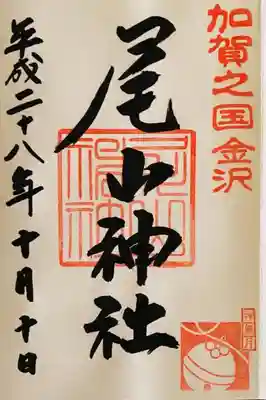 加賀之国金沢
尾山神社
平成二十八年十月十日
尾山神社